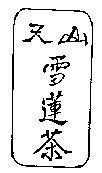 天山
雪蓮茶